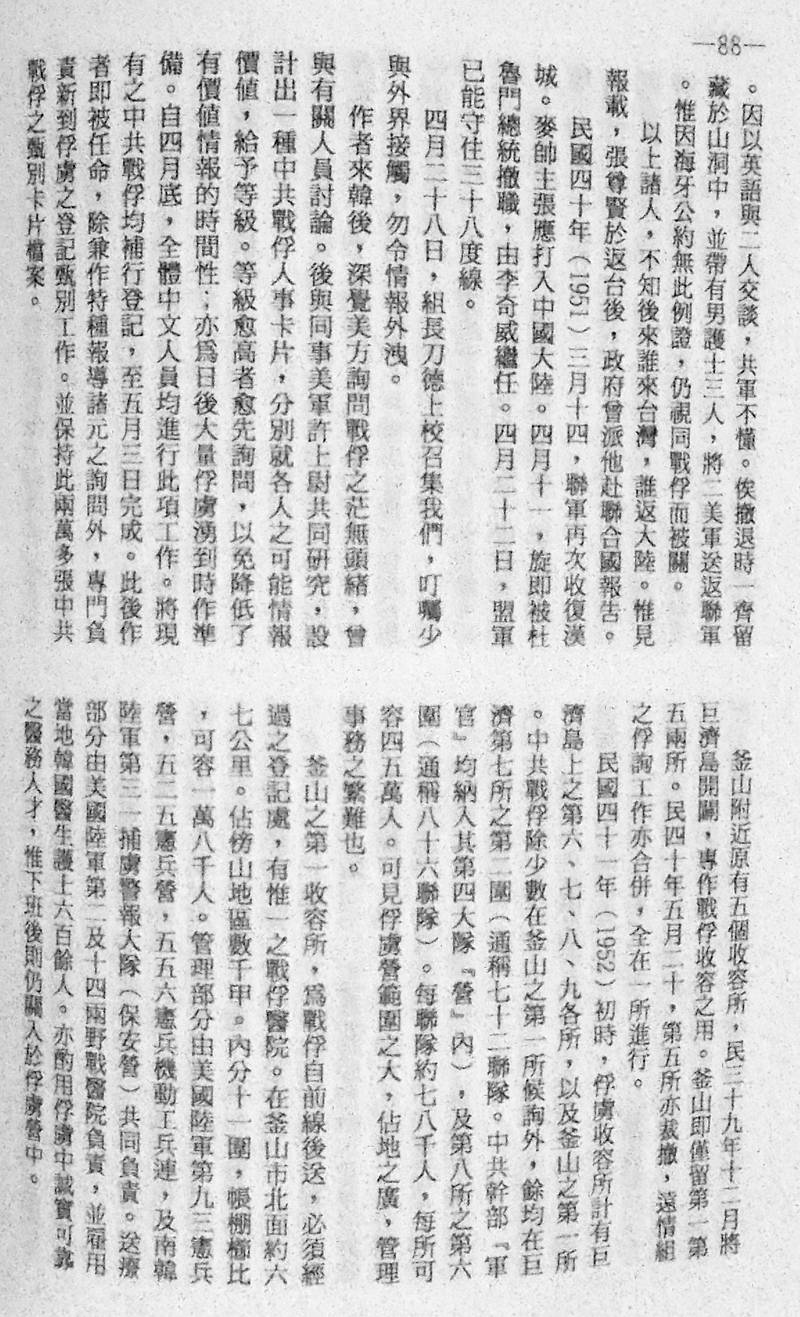 —88—
。因以英語與二人交談，共軍不懂。俟撤退時一齊留
藏於山洞中，並帶有男護士三人，將二美軍送返聯軍
。惟因海牙公約無此例證，仍視同戰俘而被關。
以上諸人，不知後來誰來台灣，誰返大陸。惟見
報載，張尊賢於返台後，政府曾派他赴聯合國報告。
民國四十年（1951）三月十四，聯軍再次收復漢
城。麥帥主張應打入中國大陸。四月十一，旋即被杜
魯門總統撤職，由李奇威繼任。四月二十二日，盟軍
已能守住三十八度線。
四月二十八日，組長刀德上校召集我們，叮囑少
與外界接觸，勿令情報外洩。
作者來韓後，深覺美方詢問戰俘之茫無頭緒，曾
與有關人員討論。後與同事美軍許上尉共同研究，設
計出一種中共戰俘人事卡片，分別就各人之可能情報
價值，給予等級。等級愈高者愈先詢問，以免降低了
有價值情報的時間性；亦爲日後大量俘虜湧到時作準
備。自四月底，全體中文人員均進行此項工作。將現
有之中共戰俘均補行登記，至五月三日完成。此後作
者即被任命，除兼作特種報導諸元之詢問外，專門負
責新到俘虜之登記甄別工作。並保持此兩萬多張中共
戰俘之甄別卡片檔案。
釜山附近原有五個收容所，民三十九年十二月將
巨濟島開闢，專作戰俘收容之用。釜山即僅留第一第
五兩所。民四十年五月二十，第五所亦裁撤，遠情組
之俘詢工作亦合併，全在一所進行。
民國四十一年（1952）初時，俘虜收容所計有巨
濟島上之第六、七、八、九各所，以及釜山之第一所
。中共戰俘除少數在釜山之第一所候詢外，餘均在巨
濟第七所之第二圍（通稱七十二聯隊。中共幹部『軍
官』均納入其第四大隊『營』內），及第八所之第六
圍（通稱八十六聯隊）。每聯隊約七八千人，每所可
容四五萬人。可見俘虜營範圍之大，佔地之廣，管理
事務之繁難也。
釜山之第一收容所，爲戰俘自前線後送，必須經
過之登記處，有惟一之戰俘醫院。在釜山市北面約六
七公里。佔傍山地區數千甲。內分十一圍，帳棚櫛比
，可容一萬八千人。管理部分由美國陸軍第九三憲兵
營，五二五憲兵營，五五六憲兵機動工兵連，及南韓
陸軍第三一捕虜警報大隊（保安營）共同負責。送療
部分由美國陸軍第二及十四兩野戰醫院負責，並雇用
當地韓國醫生護士六百餘人。亦酌用俘虜中誠實可靠
之醫務人才，惟下班後則仍關入於俘虜營中。